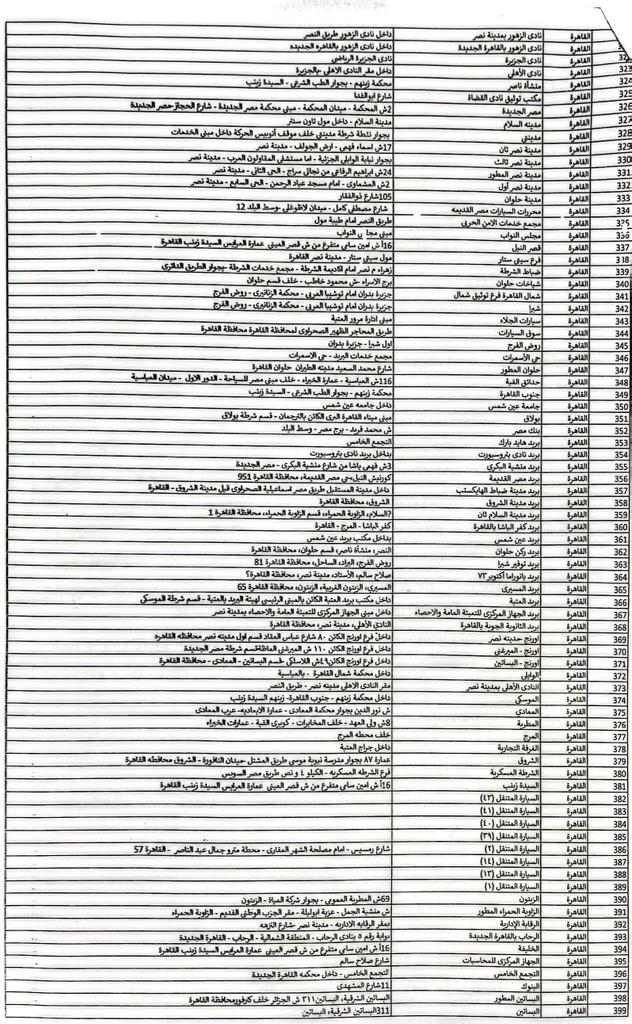 القاهرة نادى الزهور بمدينة نصر داخل نادى الزهور طريق النصر
القاهرة نادى الزهور بالقاهرة الجديدة داخل نادى الزهور بالقاهره الجديده
القاهرة نادى الجزيرة نادى الجزيرة الرياضي
323 القاهرة نادى الأهلي داخل مقر النادى الاهلي -بالجزيرة
324 القاهرة منشأة ناصر محكمة زينهم - بجوار الطب الشرعي - السيدة زينب
325 القاهرة مكتب توثيق نادى القضاة شارع ابوالفدا
326 القاهرة مصر الجديدة 2ش المحكمة - ميدان المحكمة - مبنى محكمة مصر الجديدة - شارع الحجاز-مصر الجديدة
327 القاهرة مدينه السلام مدينة السلام - داخل مول تاون سنتر
328 القاهرة مدينتي بجوار نقطة شرطة مدينتي خلف موقف أتوبيس الحركة داخل مبنى الخدمات
329 القاهرة مدينة نصر ثان 17ش اسماء فهمي - ارض الجولف - مدينة نصر
330 القاهرة مدينة نصر ثالث بجوار نيابة الوايلى الجزئية - اما مستشفى المقاولون العرب - مدينة نصر
331 القاهرة مدينة نصر المطور 24ش ابراهيم الرفاعي من نجاتي سراج - الحى الثانى - مدينة نصر
332 القاهرة مدينة نصر أول 2ش المشماوى - امام مسجد عباد الرحمن - الحى السابع - مدينة نصر
333 القاهرة مدينة حلوان 105شارع ذوالفقار
334 القاهرة محررات السيارات مصر القديمه شارع مصطفى كامل - ميدان لاظوغلى -وسط البلد 12
335 القاهرة مجمع خدمات الامن الحربى طريق النصر امام طيبة مول
336 القاهرة مجلس النواب مبنى مجلس النواب
337 القاهرة قصر النيل 16أ ش امين سامى متفرع من ش قصر العينى عمارة العرايس السيدة زينب القاهرة
القاهرة فرع سيتى ستار مول سيتى ستار - مدينة نصر القاهرة
339 القاهرة ضباط الشرطة زهراء م نصر امام اكاديمة الشرطة - مجمع خدمات الشرطة -بجوار الطريق الدائرى
340 القاهرة شياخات حلوان برج الاسراء -ش محمود خاطب - خلف قسم حلوان
341 القاهرة شمال القاهرة فرع توثيق شمال جزيرة بدران امام توشيبا العربى - محكمة الزنانيرى - روض الفرج
342 القاهرة شبرا جزيرة بدران امام توشيبا العربى - محكمة الزنانيرى - روض الفرج
343 القاهرة سيارات الجلاء مبنى ادارة مرور العتبة
344 القاهرة سوق السيارات طريق المحاجر الظهير الصحراوى لمحافظة القاهرة محافظة القاهرة
345 القاهرة روض الفرج اول شبرا - جزيرة بدران
346 القاهرة حي الأسمرات مجمع خدمات البريد - حى الاسمرات
347 القاهرة حلوان المطور شارع محمد السعيد مدينه الطيران حلوان القاهرة
348 القاهرة حدائق القبة 116ش العباسية - عمارة الخبراء - خلف مبنى مصر للسياحة - الدور الاول - ميدان العباسية
349 القاهرة جنوب القاهرة محكمة زينهم - بجوار الطب الشرعي - السيدة زينب
350 القاهرة جامعة عين شمس داخل جامعه عين شمس
351 القاهرة بولاق مبنى ميناء القاهرة البرى الكائن بالترجمان - قسم شرطة بولاق
352 القاهرة بنك مصر ش محمد فريد - برج مصر - وسط البلد
353 القاهرة بريد هايد بارك التجمع الخامس
354 القاهرة بريد نادى بتروسبورت بداخل بريد نادى بتروسبورت
355 القاهرة بريد منشية البكرى 3ش فهمى باشا من شارع منشية البكرى - مصر الجديدة
356 القاهرة بريد مصر القديمة كورنيش النيل-سى مصر القديمة، محافظة القاهرة 951
357 القاهرة بريد مدينة ضباط الهايكستب داخل مدينة المستقبل طريق مصر اسماعيلية الصحراوى قبل مدينة الشروق - القاهرة
358 القاهرة بريد مدينة الشروق الشروق، محافظة القاهرة
359 القاهرة بريد مدينة السلام ثان ?السلام، الزاوية الحمراء، قسم الزاوية الحمراء، محافظة القاهرة 1
360 القاهرة بريد كفر الباشا بالقاهرة كفر الباشا - المرج - القاهرة
361 القاهرة بريد عين شمس بداخل مكتب بريد عين شمس
362 القاهرة بريد ركن حلوان النصر، منشأة ناصر، قسم حلوان، محافظة القاهرة
363 القاهرة بريد توفير شبرا روض الفرج، البراد، الساحل، محافظة القاهرة 81
364 القاهرة بريد بانوراما أكتوبر ٧٣ صلاح سالم، الأستاد، مدينة نصر، محافظة القاهرة؟
365 القاهرة بريد المسيرى المسيرى، الزيتون الغربية، الزيتون، محافظة القاهرة 65
366 القاهرة بريد العتبة داخل مكتب بريد العتبة الكائن بالمبنى الرئيسى لهيئة البريد بالعتبة - قسم شرطة الموسكى
367 القاهرة بريد الجهاز المركزى للتعبئة العامة والاحصاء داخل مبنى الجهاز المركزى للتعبئة العامة والاحصاء بمدينة نصر
368 القاهرة بريد الثانوية الجوية بالقاهرة النادى الأهلي، مدينة نصر، محافظة القاهرة
369 القاهرة اورنج مدينه نصر داخل فرع اورنج الكائن ٨٠ شارع عباس العقاد قسم اول مدينه نصر محافظه القاهره
370 القاهرة اورنج - الميرغنى داخل فرع اورنج الكائن ١١٠ ش الميرغنى الماظةقسم شرطة مصر الجديدة
371 القاهرة اورنج - البساتين داخل فرع اورنج الكائن٤٩ش اللاسلكى -قسم البساتين - المعادى - محافظة القاهرة
372 القاهرة الوايلى داخل محكمة شمال القاهرة - بالعباسية
373 القاهرة النادى الأهلى بمدينة نصر مقر النادى الاهلى مدينه نصر - طريق النصر
374 القاهرة الموسكى داخل محكمة زينهم - جنوب القاهرة- زينهم السيدة زينب
375 القاهرة المعادى ش نور الدين بجوار محكمة المعادى - عمارة الابعاديه- عرب المعادى
376 القاهرة المطرية 8ش ولى العهد - خلف المخابرات - كوبرى القبة - عمارات الخبراء
377 القاهرة المرج خلف محطه المرج
378 القاهرة الغرفة التجارية داخل جراج العتبة
379 القاهرة الشروق عمارة ٨٧ بجوار مدرسة نبوية موسى طريق المشتل -ميدان النافورة - الشروق محافظه القاهرة
380 القاهرة الشرطة العسكرية فرع الشرطه العسكريه - الكيلو ٤ و نص طريق مصر السويس
381 القاهرة السيدة زينب 16أ ش امين سامى متفرع من ش قصر العينى عمارة العرايس السيدة زينب القاهرة
382 القاهرة السيارة المتنقل (٤٢)
383 القاهرة السيارة المتنقل (٤١)
384 القاهرة السيارة المتنقل (٤٠)
385 القاهرة السيارة المتنقل (٣٩)
386 القاهرة السيارة المتنقل (٢) شارع رمسيس - امام مصلحة الشهر العقارى - محطة مترو جمال عبد الناصر - القاهرة 57
387 القاهرة السيارة المتنقل (١٤)
388 القاهرة السيارة المتنقل (١٣)
389 القاهرة السيارة المتنقل (١)
390 القاهرة الزيتون 69ش المطرية العمومى - بجوار شركة المياة - الزيتون
391 القاهرة الزاوية الحمراء المطور ش منشية الجمل - عزبة ابوليلة - مقر الحزب الوطنى القديم - الزاوية الحمراء
392 القاهرة الرقابة الإدارية بمقر الرقابه الاداريه - مدينة نصر -شارع النزهه
393 القاهرة الرحاب بالقاهرة الجديدة بوابة رقم ٥ بنادى الرحاب - المنطقة الشمالية - الرحاب - القاهرة الجديدة
394 القاهرة الخليفة 16أ ش امين سامى متفرع من ش قصر العينى عمارة العرايس السيدة زينب القاهرة
395 القاهرة الجهاز المركزى للمحاسبات شارع صلاح سالم
396 القاهرة التجمع الخامس التجمع الخامس - داخل محكمه القاهرة الجديدة
397 القاهرة البنوك 11شارع المشهدى
398 القاهرة البساتين المطور البساتين الشرقية، البساتين٣١١ ش الجزائر خلف كارفور محافظة القاهرة
399 القاهرة البساتين 311البساتين الشرقية، البساتين